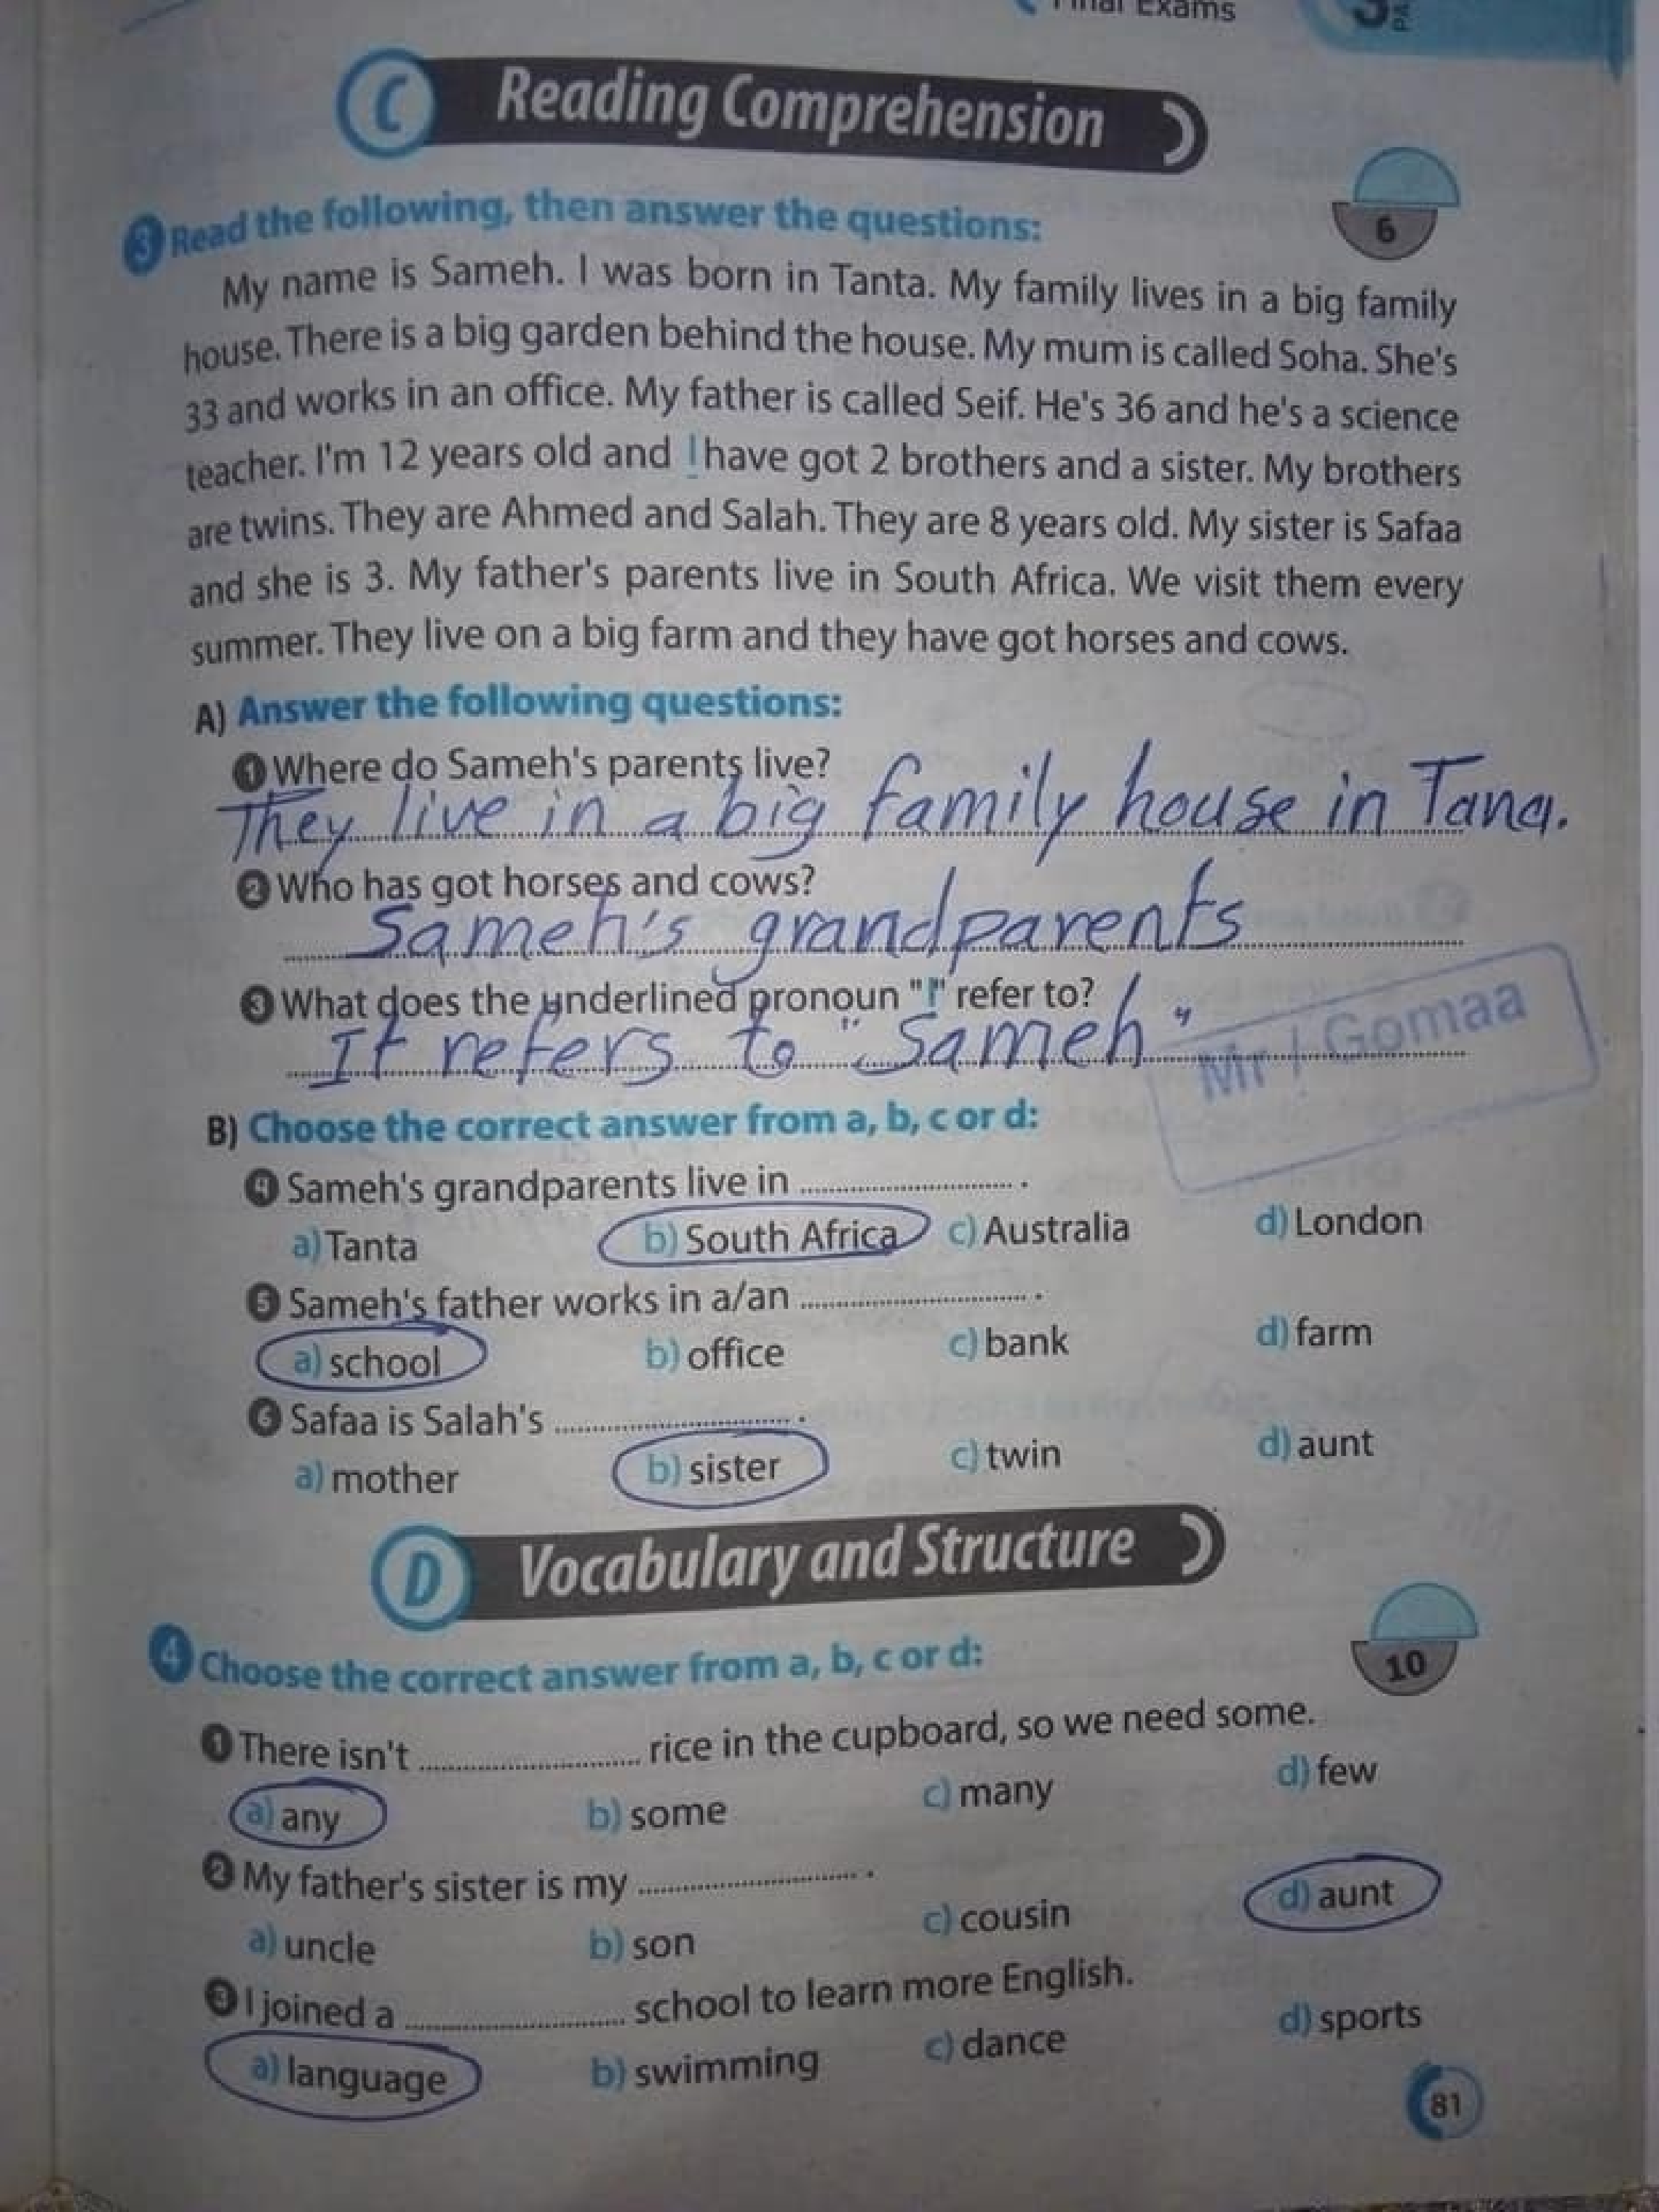 Final Exams
C Reading Comprehension
6
3 Read the following, then answer the questions:
My name is Sameh. I was born in Tanta. My family lives in a big family
house. There is a big garden behind the house. My mum is called Soha. She's
33 and works in an office. My father is called Seif. He's 36 and he's a science
teacher. I'm 12 years old and I have got 2 brothers and a sister. My brothers
are twins. They are Ahmed and Salah. They are 8 years old. My sister is Safaa
and she is 3. My father's parents live in South Africa. We visit them every
summer. They live on a big farm and they have got horses and cows.
A) Answer the following questions:
1 Where do Sameh's parents live?
They live in a big family house in Tana.
2 Who has got horses and cows?
Sameh's grandparents
3 What does the underlined pronoun "I" refer to?
It refers to "Sameh"
Mr / Gomaa
B) Choose the correct answer from a, b, c or d:
4 Sameh's grandparents live in .............................. .
a) Tanta b) South Africa c) Australia d) London
5 Sameh's father works in a/an .............................. .
a) school b) office c) bank d) farm
6 Safaa is Salah's .............................. .
a) mother b) sister c) twin d) aunt
D Vocabulary and Structure
10
4 Choose the correct answer from a, b, c or d:
1 There isn't .............................. rice in the cupboard, so we need some.
a) any b) some c) many d) few
2 My father's sister is my .............................. .
a) uncle b) son c) cousin d) aunt
3 I joined a .............................. school to learn more English.
a) language b) swimming c) dance d) sports
81